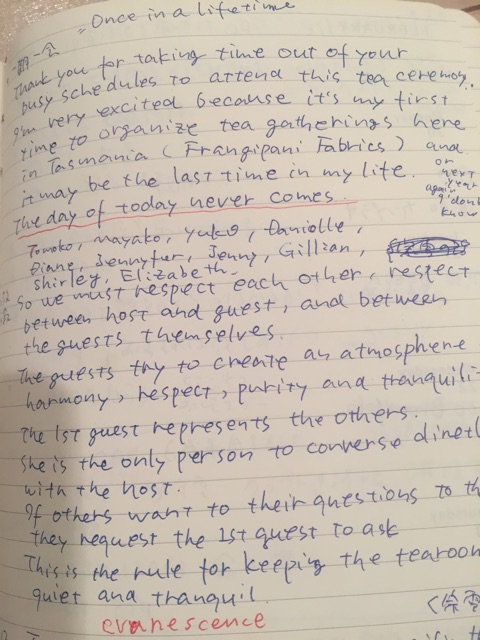 "Once in a lifetime
一期一会
Thank you for taking time out of your
busy schedules to attend this tea ceremony.
I'm very excited because it's my first
time to organize tea gatherings here
in Tasmania (Frangipani Fabrics) and
it may be the last time in my life.
or
next
year
again
I don't
know
The day of today never comes.
Tomoko, Mayako, Yuko, Danielle,
Diane, Jennyfer, Jenny, Gillian,
Shirley, Elizabeth.
So we must respect each other, respect
between host and guest, and between
the guests themselves.
The guests try to create an atmosphere
harmony, respect, purity and tranquili-
The 1st guest represents the others.
She is the only person to converse directl
with the host.
If others want to their questions to th
they request the 1st guest to ask
This is the rule for keeping the tearoom
quiet and tranquil.
evanescence